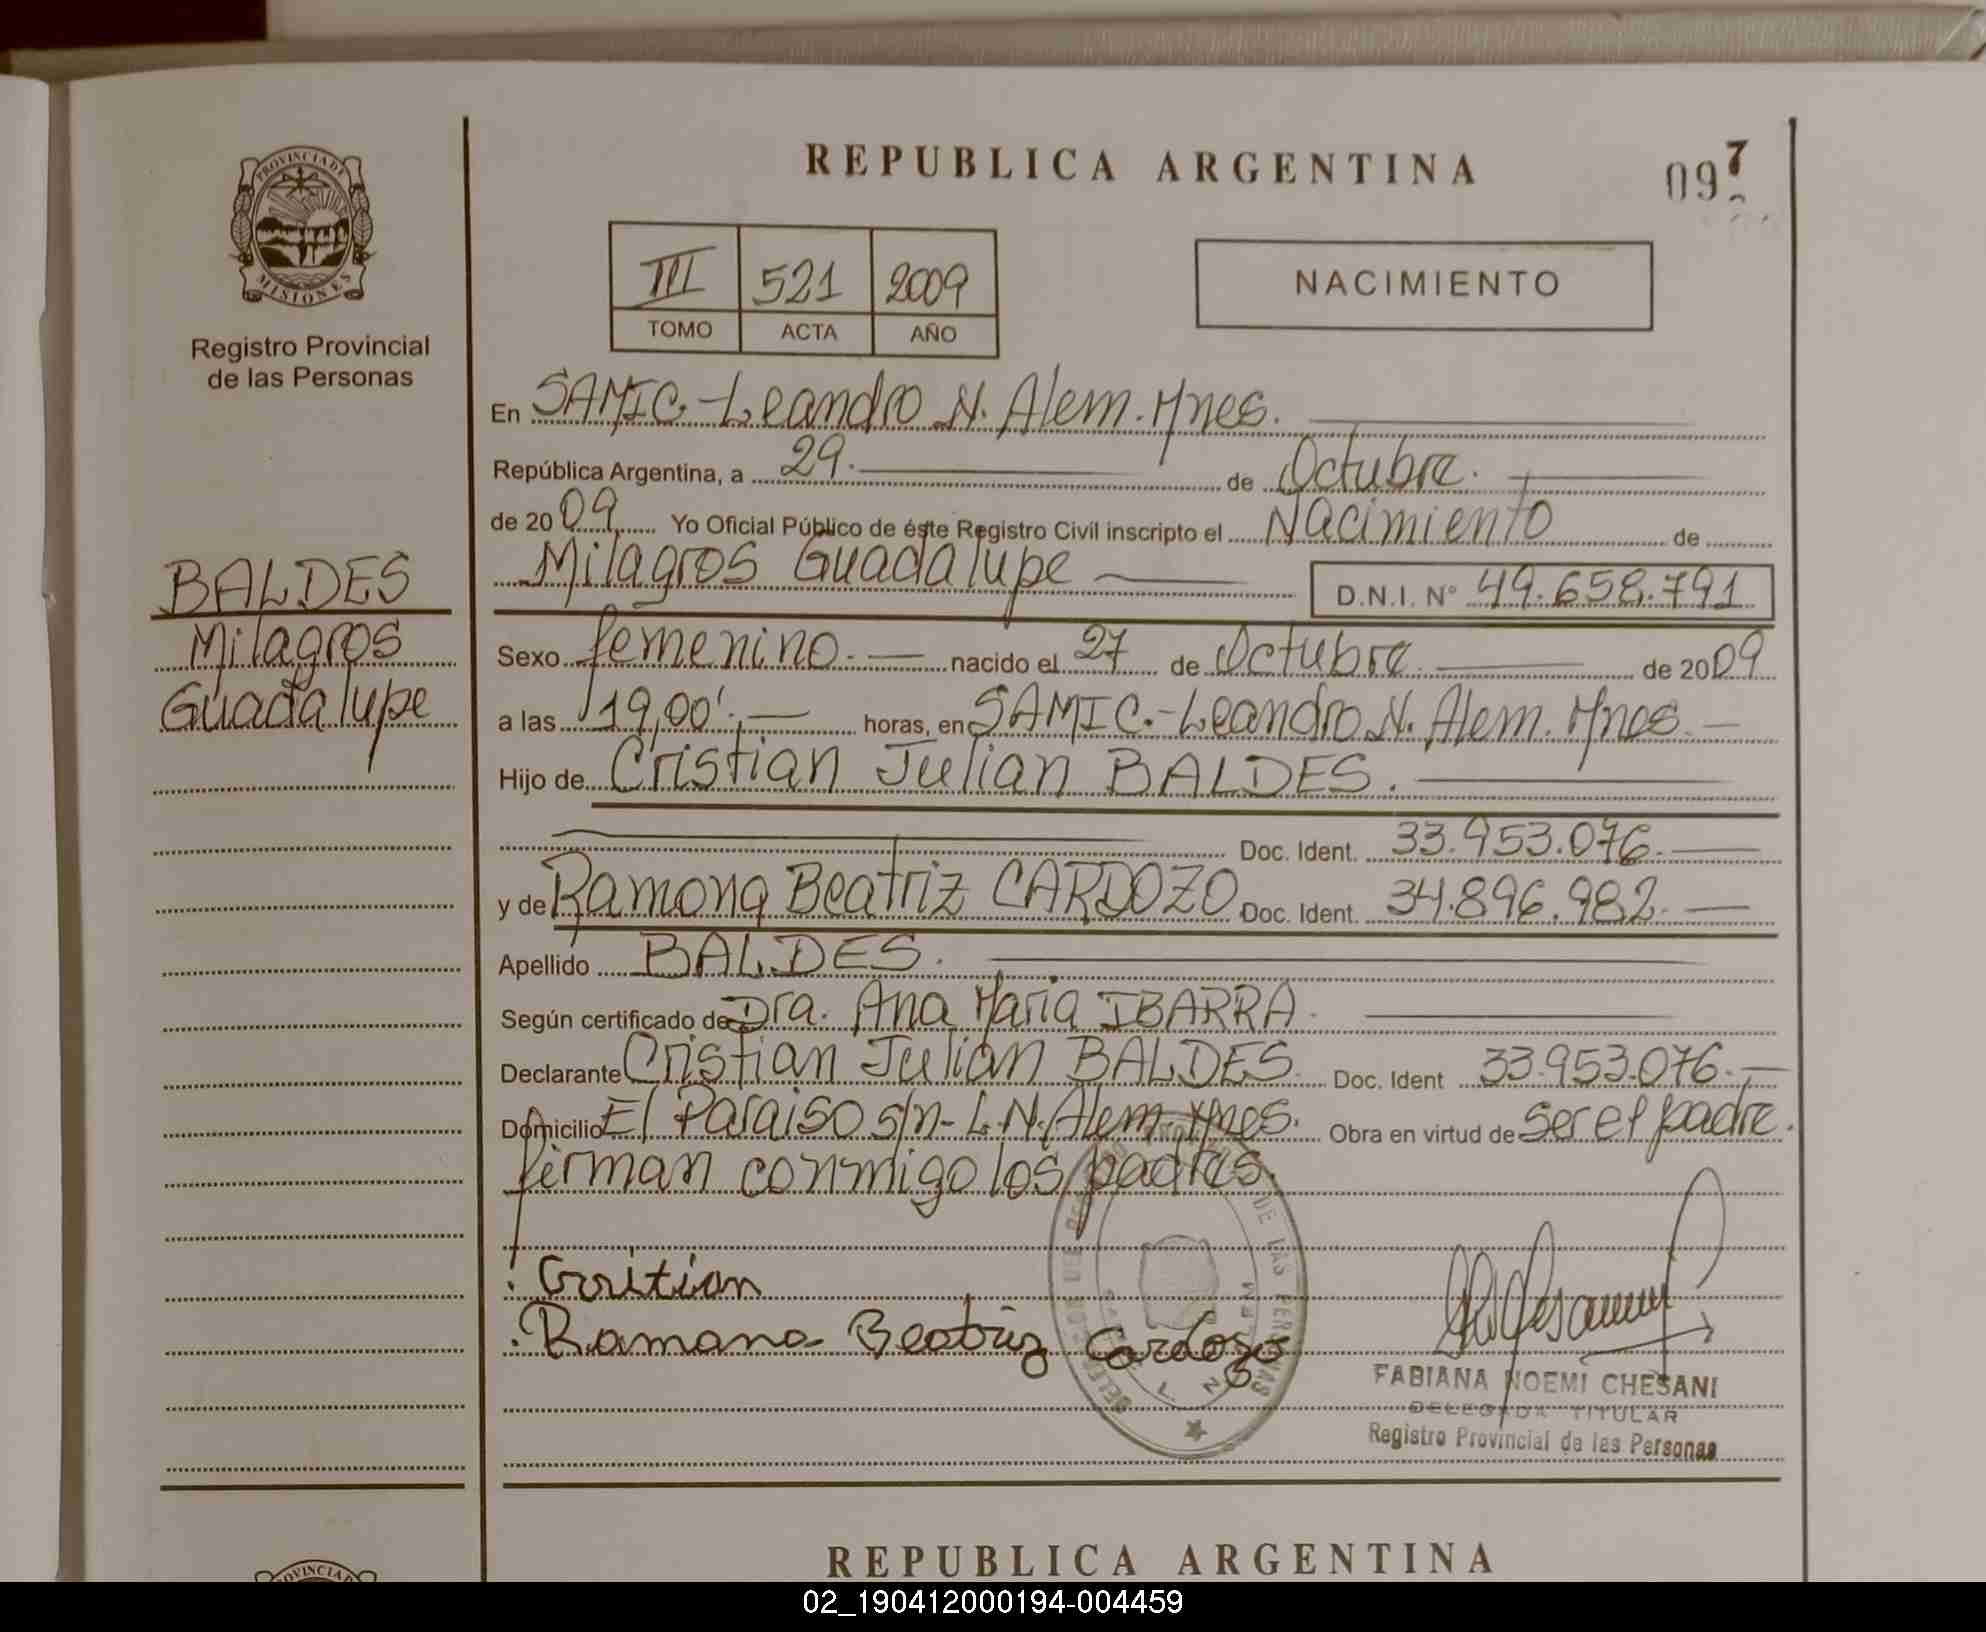 PROVINCIA DE
MISIONES
Registro Provincial
de las Personas
BALDES
Milagros
Guadalupe
REPUBLICA ARGENTINA
097
III 521 2009
TOMO ACTA AÑO
NACIMIENTO
En SAMIC.-Leandro N. Alem. Mnes.
República Argentina, a 29. de Octubre.
de 2009 Yo Oficial Público de éste Registro Civil inscripto el Nacimiento de
Milagros Guadalupe D.N.I. N° 49.658.791
Sexo femenino. nacido el 27 de Octubre. de 2009
a las 19,00'. horas, en SAMIC.-Leandro N. Alem. Mnes
Hijo de Cristian Julian BALDES.
Doc. Ident. 33.953.076.
y de Ramona Beatriz CARDOZO Doc. Ident. 34.896.982.
Apellido BALDES.
Según certificado de Dra. Ana Maria IBARRA.
Declarante Cristian Julian BALDES Doc. Ident 33.953.076.
Domicilio El Paraiso s/n-L.N.Alem Mnes. Obra en virtud de ser el padre.
firman conmigo los padres.
Cristian
Ramona Beatriz Cardozo
DE LAS PERSONAS
FABIANA NOEMI CHESANI
DELEGADA TITULAR
Registro Provincial de las Personas
REPUBLICA ARGENTINA
02_190412000194-004459